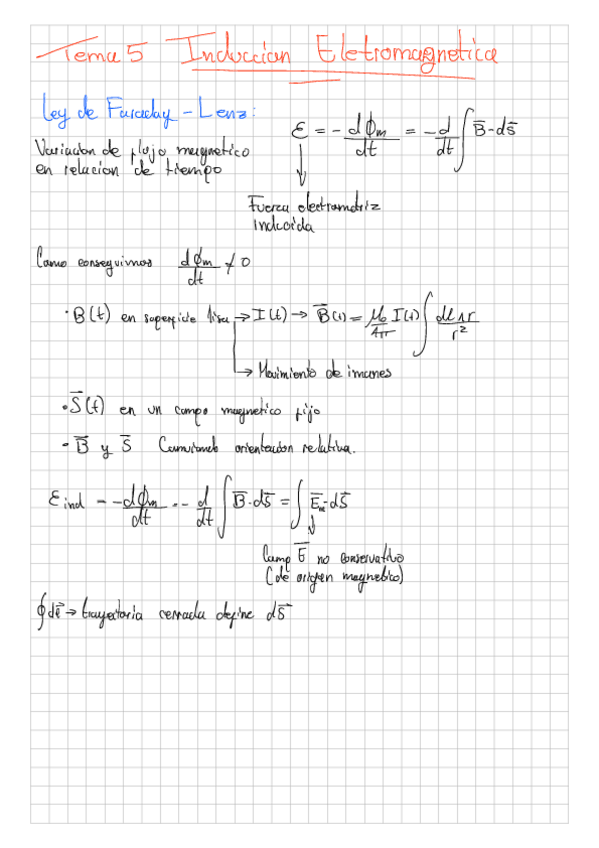 Tema 5 Induccion Eletromagnetica
Ley de Faraday - Lenz:
ε = - dϕm/dt = - d/dt ∫ B̄ · ds̄
Variacion de flujo magnetico
en relacion de tiempo
Fuerza electromotriz
inducida
Como conseguimos dϕm/dt ≠ 0
· B(t) en superficie fija → I(t) → B̄(t) = μ₀/4π I(t) ∫ dl ∧ r / r²
↳ Movimiento de imanes
· S̄(t) en un campo magnetico fijo
· B̄ y S̄ Cambiando orientacion relativa.
ε ind = - dϕm/dt = - d/dt ∫ B̄ · ds̄ = ∫ Ēm · ds̄
Campo Ē no conservativo
(de origen magnetico)
∮ dl̄ → trayectoria cerrada define ds̄